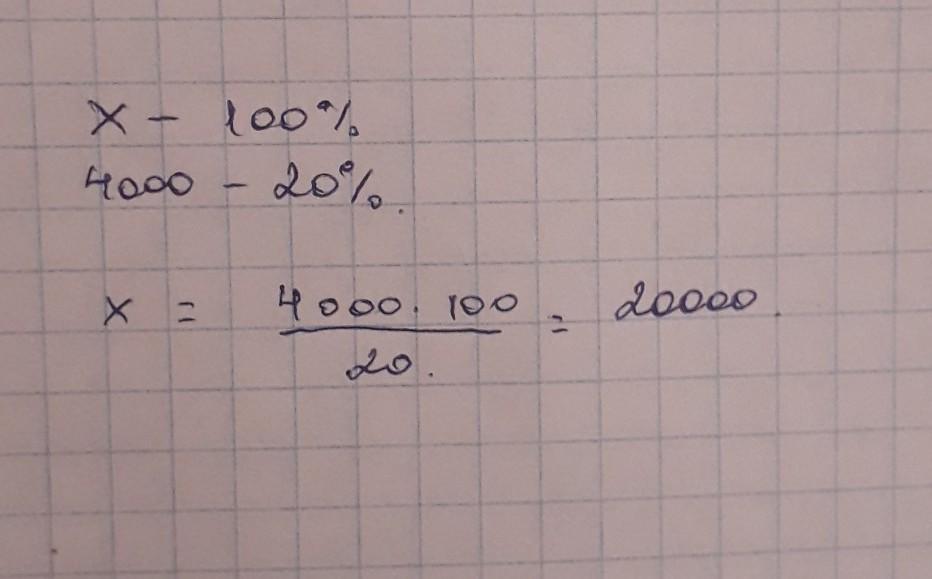 x - 100%
4000 - 20%.
x = 4000 · 100 / 20. = 20000.